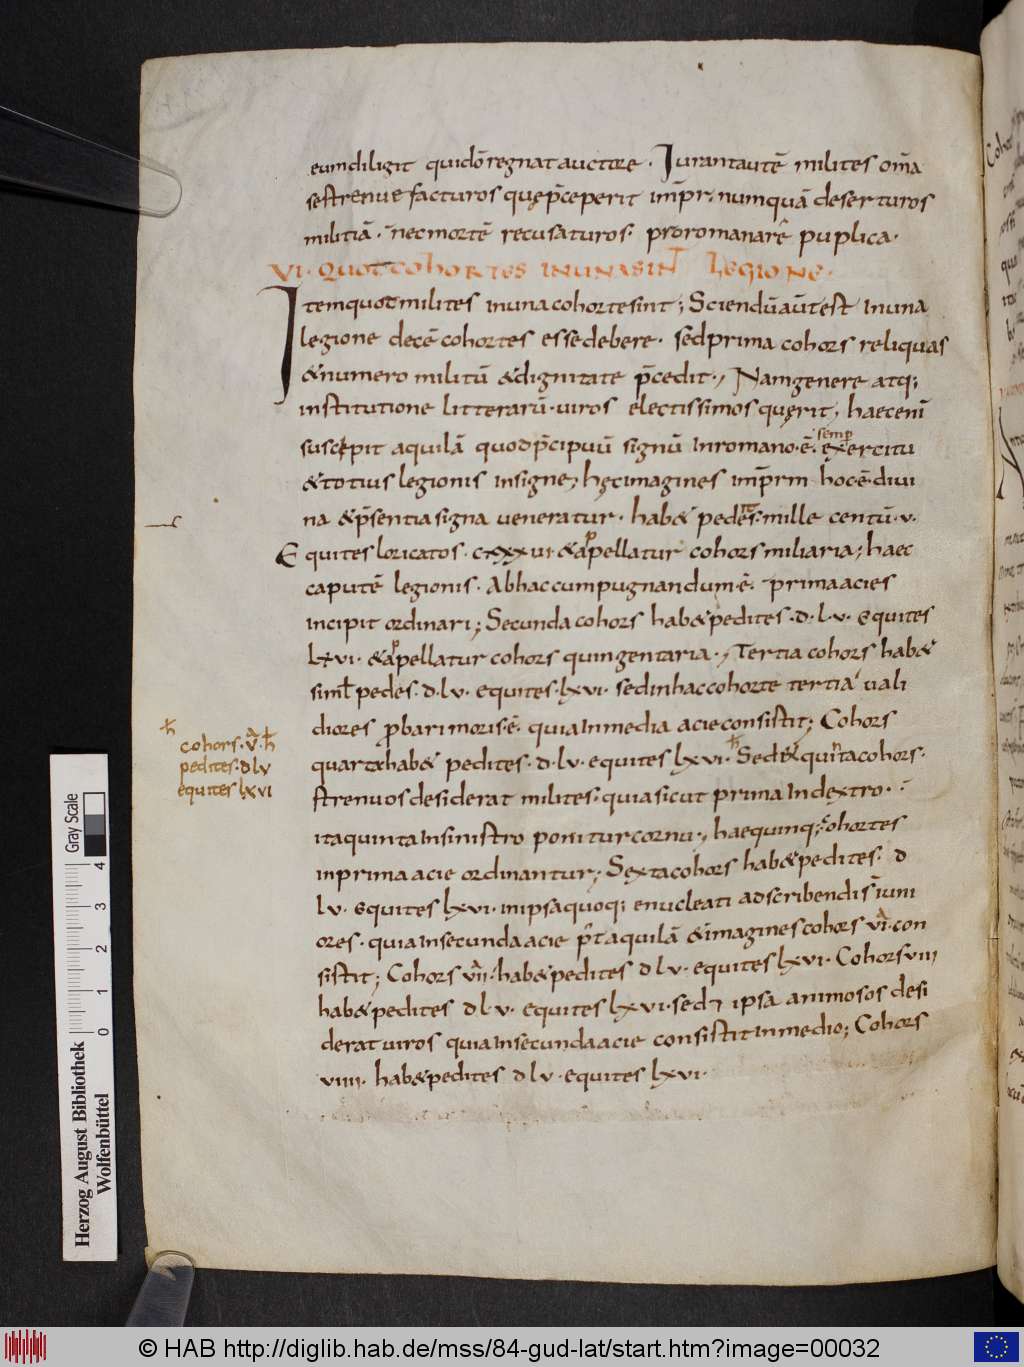 eum diligit qui dō regnat auctore . Iurant autē milites om̄a
se strenue facturos quę p̄ceperit imp̄r ; numquā deserturos
militiā . nec mortē recusaturos . pro romana rē puplica .
VI . QUOT COHORTES IN UNA SINT LEGIONE .
Item quot milites in una cohorte sint ; Sciendū aūt est in una
legione decē cohortes esse debere . sed prima cohors reliquas
& numero militū & dignitate p̄cedit . Nam genere atq;
institutione litterarū . viros electissimos quęrit , haec enī
semp̄
suscepit aquilā quod p̄cipuū signū in romano . ē . exercitu
& totius legionis insigne , hęc imagines imp̄rm hoc ē . divi
na & p̄sentia signa veneratur . hab& pedes . mille centū . v .
Equites loricatos . cxxxvi . & appellatur cohors miliaria ; haec
caput ē legionis . Ab hac cum pugnandum ē . prima acies
incipit ordinari ; Secunda cohors hab& pedites . d . l . v . equites
lxvi . & appellatur cohors quingentaria . Tertia cohors hab&
simł pedes . d . l v . equites . lxvi . sed in hac cohorte tertia vali
diores probari moris . ē . quia in media acie consistit ; Cohors
quarta hab& pedites . d . lv . equites lxvi . Sed & quinta cohors .
strenuos desiderat milites . quia sicut prima in dextro .
ita quinta in sinistro ponitur cornu . hae quinq; cohortes
in prima acie ordinantur ; Sexta cohors hab& pedites . d
lv . equites lxvi . in ipsa quoq; enucleati adscribendi s̄ iuni
ores . quia in secunda acie p̄t aquilā & imagines cohors vi . con
sistit ; Cohors vii . hab& pedites d l v . equites lxvi . Cohors viii
hab& pedites d l v . equites lxvi . sed & ipsa animosos desi
derat viros quia in secunda acie consistit in medio ; Cohors
viiii . hab& pedites d l v . equites lxvi .
ħ
cohors . v . ħ
pedites . d l v
equites lxvi
Herzog August Bibliothek
Wolfenbüttel
Gray Scale
0 1 2 3 4
© HAB http://diglib.hab.de/mss/84-gud-lat/start.htm?image=00032